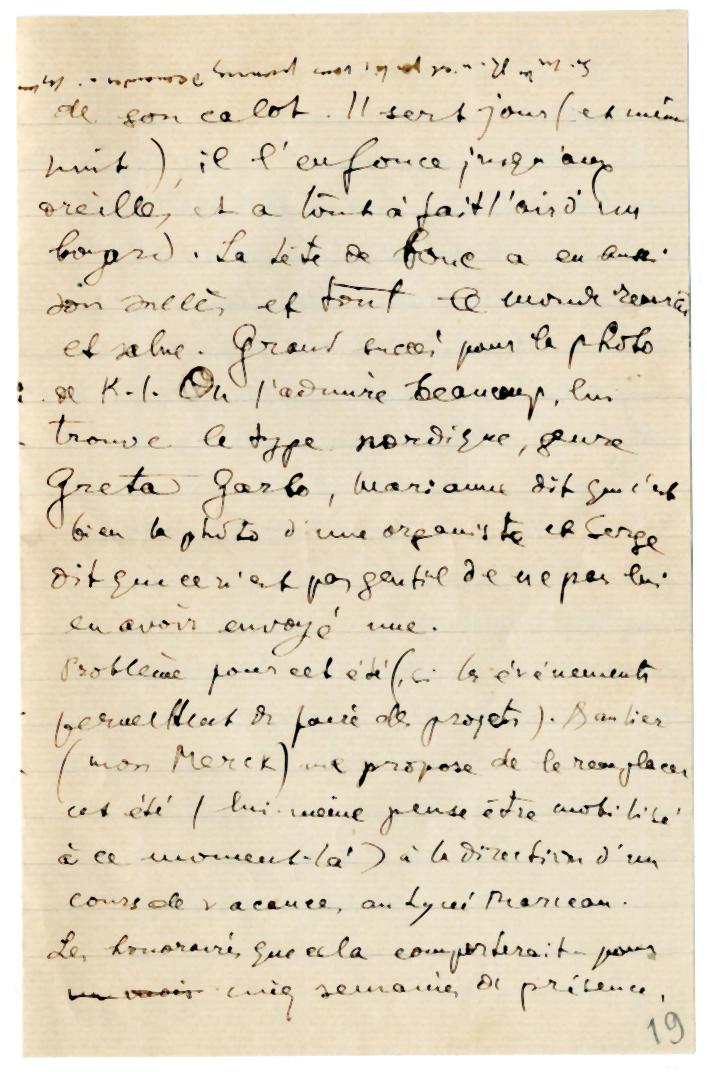 de son calot. Il sert jour (et même
nuit), il l'enfonce jusqu'aux
oreilles, et a tout à fait l'air d'un
boyard. La tête de bouc a eu aussi
son succès et tout ce monde remercie
et salue. Grand succès pour la photo
de K.-I. On l'admire beaucoup, lui
trouve le type nordique, genre
Greta Garbo, Marianne dit que c'est
bien la photo d'une organiste et Serge
dit que ce n'est pas gentil de ne pas lui
en avoir envoyé une.
Problème pour cet été (si les événements
permettent de faire des projets).
(mon Merck) me propose de le remplacer
cet été (lui-même pense être mobilisé
à ce moment-là) à la direction d'un
cours de vacances au Lycée Marceau.
Les honoraires que cela comporterait pour
un mois cinq semaines de présence,
19